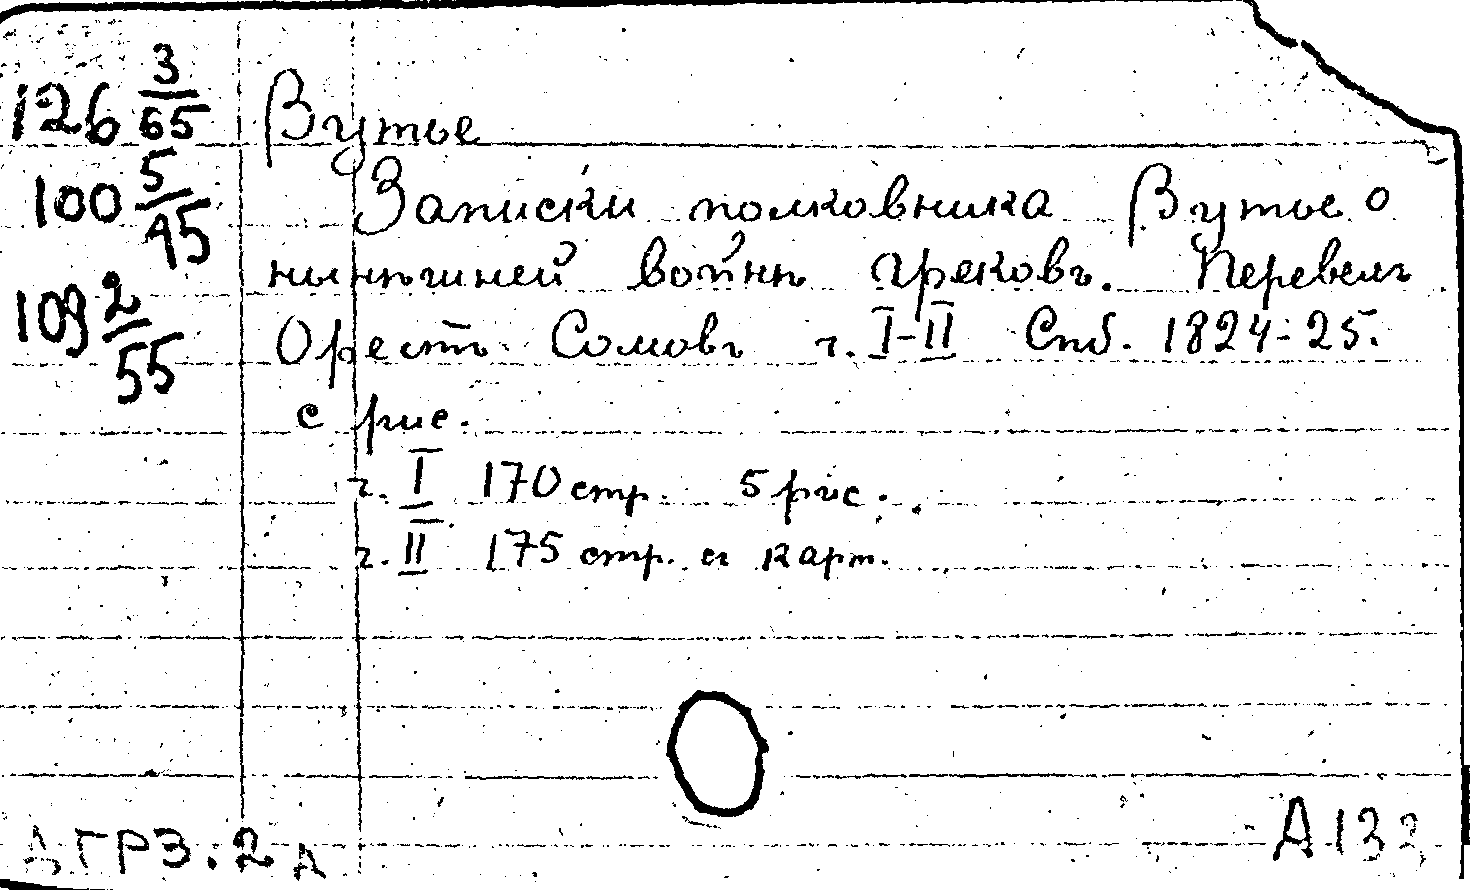 126 3/65
100 5/45
109 2/55
Вутье
Записки полковника Вутье о
нынѣшней войнѣ грековъ. Перевелъ
Орестъ Сомовъ ч. I-II Спб. 1824-25.
с рис.
ч. I 170 стр. 5 рис.
ч. II 175 стр. съ карт.
ГРЗ. 2 А
А 133